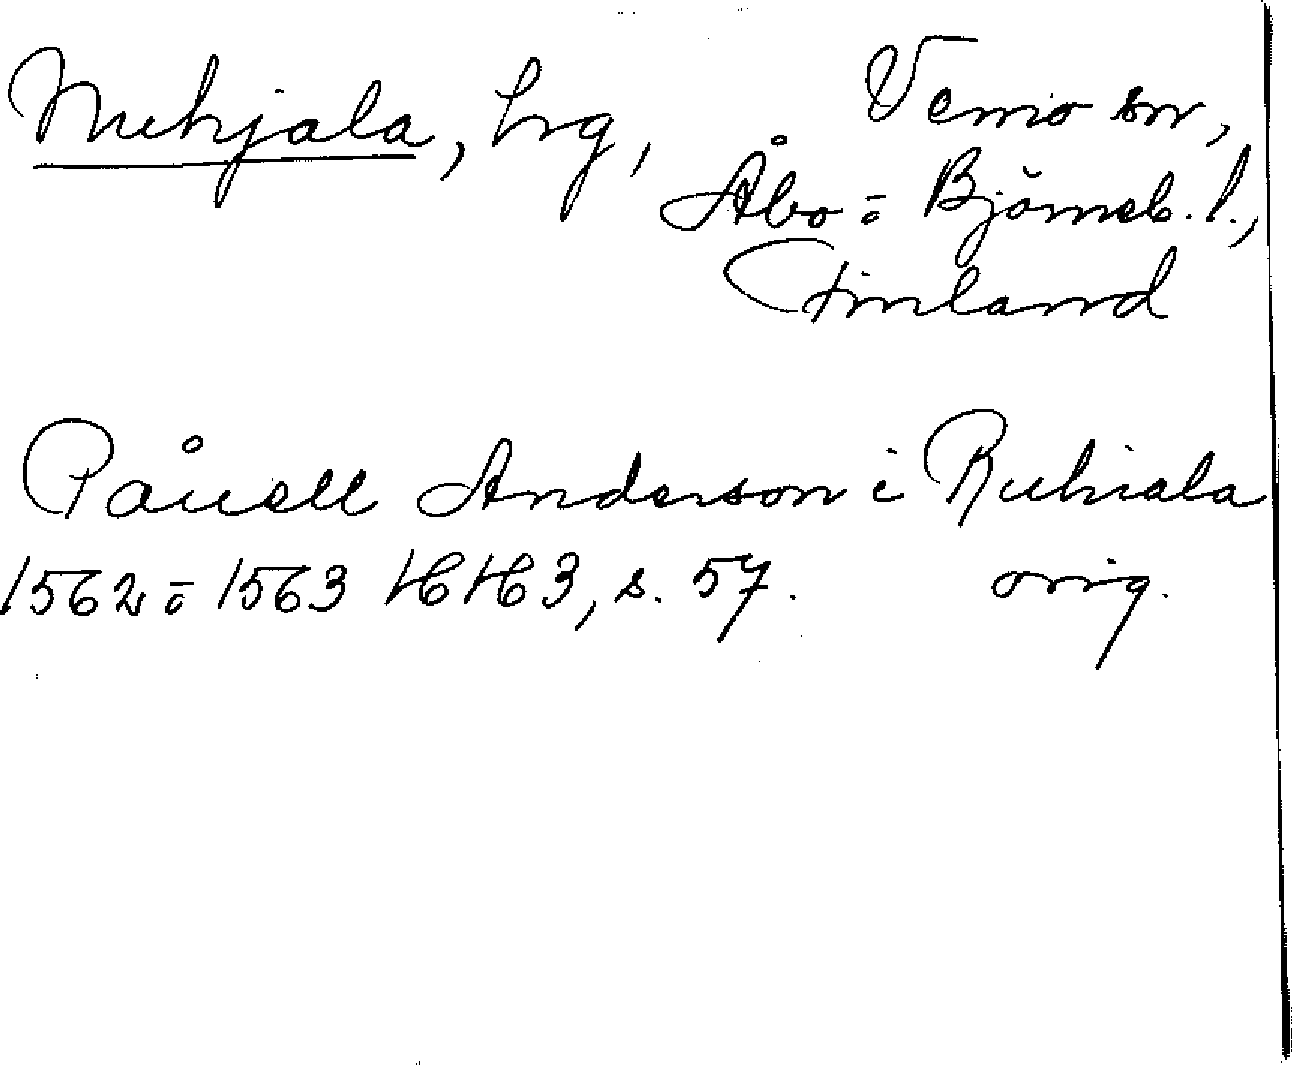 Nuhjala, hrg, Vemo sn,
Åbo = Björneb. l.,
Finland
Påuell Anderson i Ruhiala
1562 = 1563 HH 3, s. 57. orig.